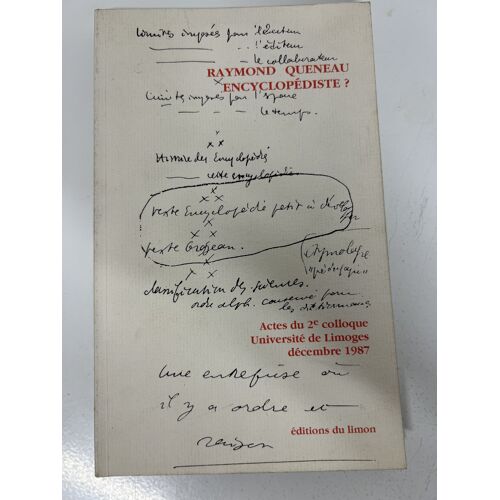 Limites imposées par l'lecteur
l'éditeur
le collaborateur
RAYMOND QUENEAU
ENCYCLOPÉDISTE ?
Limites imposées par l'espace
le temps.
x x
Histoire des Encyclopédies
cette encyclopédie.
x
x x
texte Encyclopédie petit à
x x
texte
x x
classification des sciences.
ordre alph. conservé pour
les dictionnaires
Actes du 2e colloque
Université de Limoges
décembre 1987
Une entreprise où
il y a ordre et
raison
éditions du limon